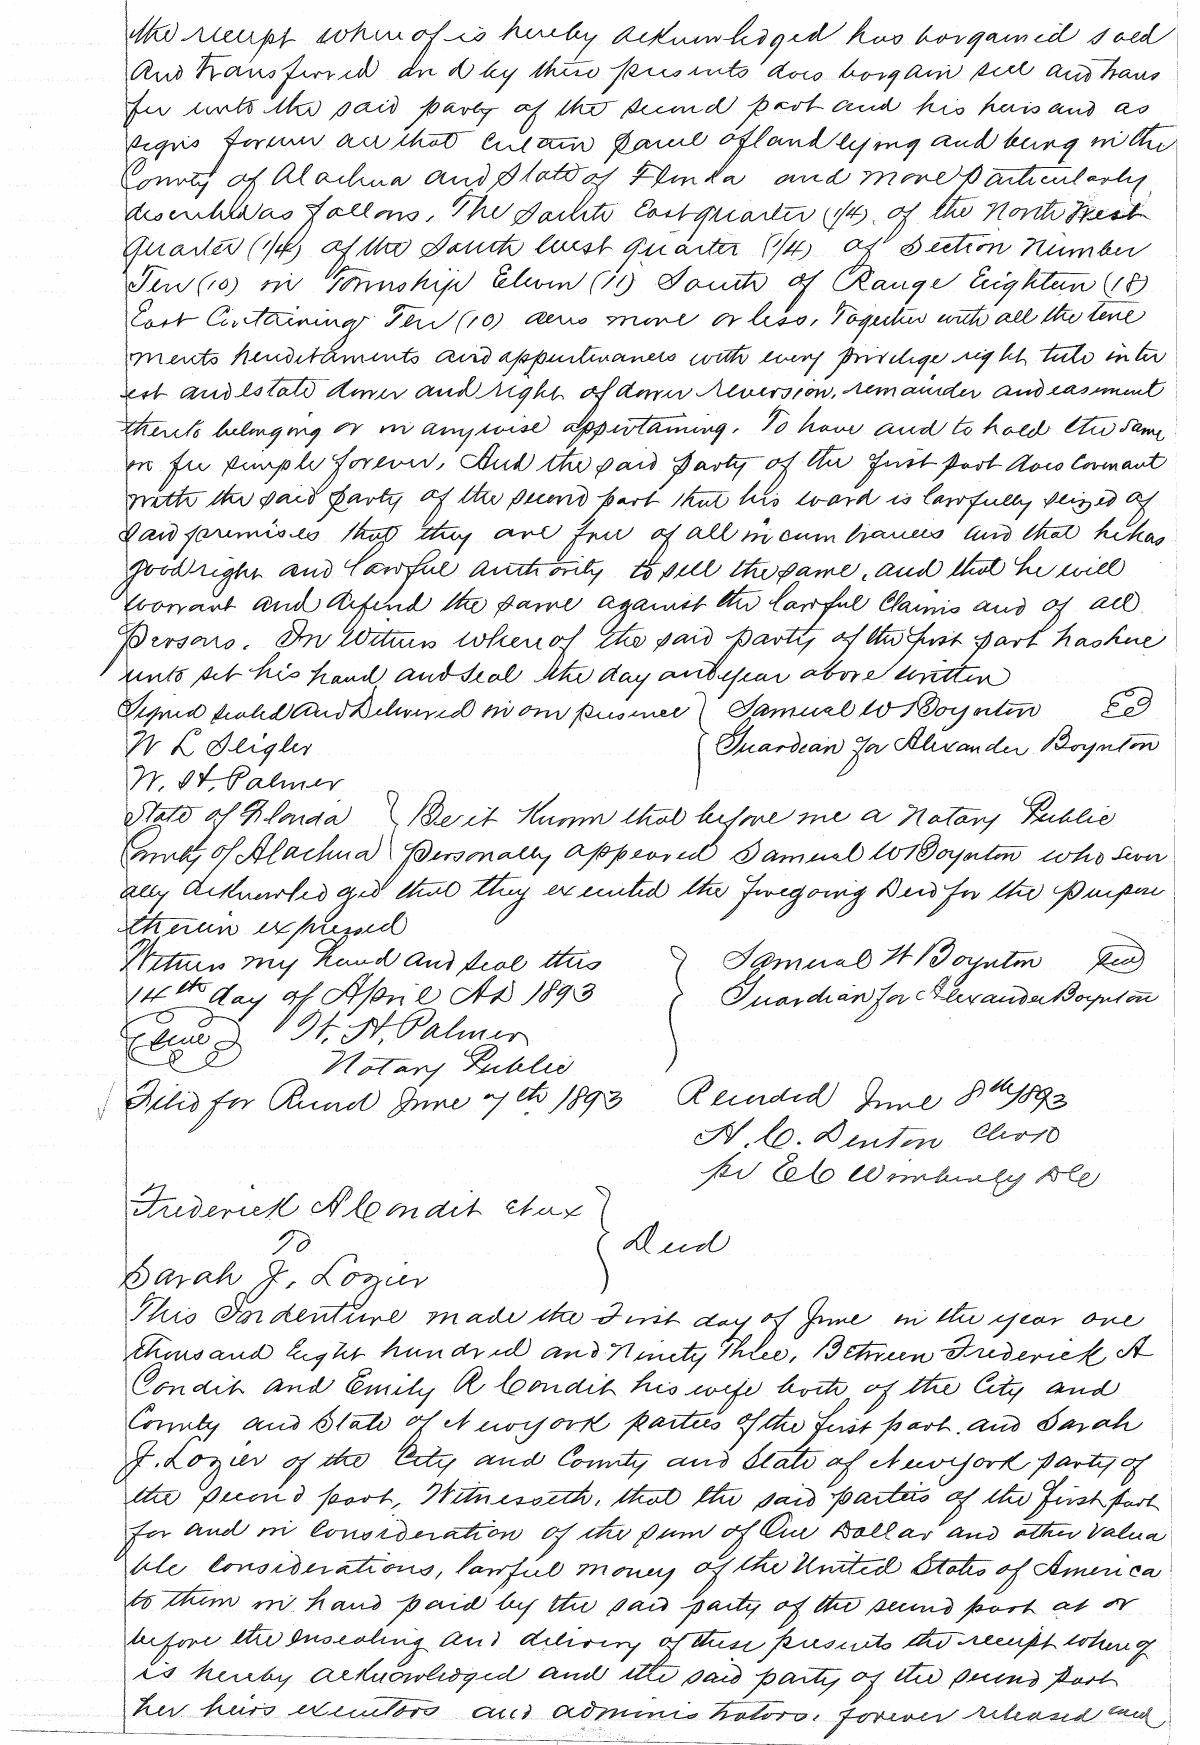 the receipt whereof is hereby acknowledged has bargained sold
And transferred and by these presents does bargain sell and trans
fer unto the said party of the second part and his heirs and as
signs forever all that certain parcel of land lying and being in the
County of Alachua and State of Florida and more particularly
described as follows, The South East quarter (1/4) of the North West
Quarter (1/4) of the South West quarter (1/4) of Section Number
Ten (10) in Township Eleven (11) South of Range Eighteen (18)
East Containing Ten (10) acres more or less, Together with all the tene
ments hereditaments and appurtenances with every privilege right title inter
est and estate dower and right of dower reversion, remainder and easement
thereto belonging or in anywise appertaining. To have and to hold the same
in fee simple forever, And the said party of the first part does Covenant
with the said party of the second part that his ward is lawfully seized of
said premises that they are free of all incumbrances and that he has
good right and lawful authority to sell the same, and that he will
warrant and defend the same against the lawful claims and of all
persons. In Witness whereof the said party of the first part has here
unto set his hand and seal the day and year above written
Signed sealed and Delivered in our presence Samuel W Boynton
W L Seigler Guardian for Alexander Boynton
W. H. Palmer
State of Florida Be it Known that before me a Notary Public
County of Alachua personally appeared Samuel W Boynton who sever
ally acknowledged that they executed the foregoing Deed for the purpose
therein expressed
Witness my hand and seal this Samuel W Boynton Seal
14th day of April AD 1893 Guardian for Alexander Boynton
Seal W. H. Palmer
Notary Public
Filed for Record June 7th 1893 Recorded June 8th 1893
H. C. Denton Clerk
pr E C Wimberly DC
Frederick A Condit et ux
To Deed
Sarah J. Lozier
This Indenture made the First day of June in the year one
thousand Eight hundred and Ninety Three, Between Frederick A
Condit and Emily R Condit his wife both of the City and
County and State of New York parties of the first part, and Sarah
J. Lozier of the City and County and State of New York party of
the second part, Witnesseth, that the said parties of the first part
for and in Consideration of the sum of One Dollar and other valua
ble Considerations, lawful money of the United States of America
to them in hand paid by the said party of the second part at or
before the ensealing and delivery of these presents the receipt whereof
is hereby acknowledged and the said party of the second part
her heirs executors and administrators, forever released and